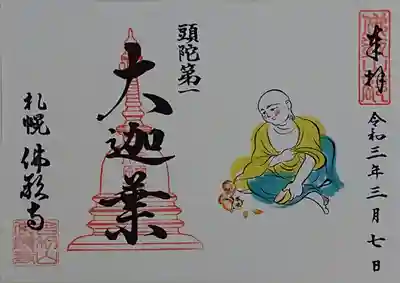 奉拝
令和三年三月七日
頭陀第一
大迦葉
札幌 佛願寺